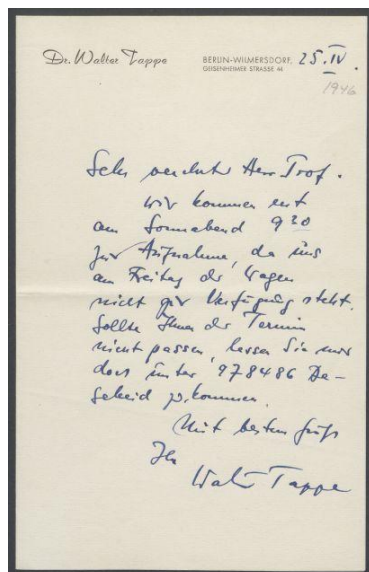 Dr. Walter Tappe
BERLIN-WILMERSDORF, 25. IV.
GEISENHEIMER STRASSE 44
1946
Sehr verehrter Herr Prof.
wir kommen erst
am Sonnabend 9 30
zur Aufnahme, da uns
am Freitag der Wagen
nicht zur Verfügung steht.
Sollte Ihnen der Termin
nicht passen, lassen Sie mir
doch unter 978486 Be-
scheid zukommen.
Mit bestem Gruß
Ihr
Walter Tappe